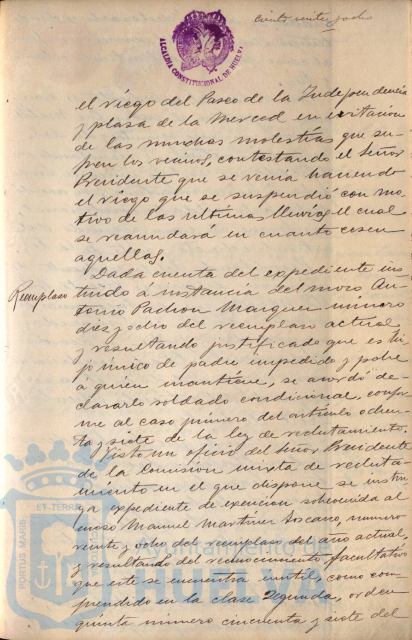 ciento veinte y ocho
ALCALDIA CONSTITUCIONAL DE HUELVA
el riego del Paseo de la Independencia
y plaza de la Merced en evitacion
de las muchas molestias que su-
fren los vecinos, contestando el Señor
Presidente que se venia haciendo
el riego que se suspendió con mo-
tivo de las ultimas lluvias el cual
se reanudará en cuanto cesen
aquellas.
Remplazo
Dada cuenta del expediente ins-
truido á instancia del mozo An-
tonio Pachon Marquez numero
diez y ocho del remplazo actual
y resultando justificado que es hi-
jo unico de padre impedido y pobre
á quien mantiene, se acordó de-
clararlo soldado condicional, confor-
me al caso primero del artículo ochen-
ta y siete de la ley de reclutamiento.
Visto un oficio del Señor Presidente
de la Comision mixta de recluta-
miento en el que dispone se instru-
ya expediente de exencion sobrevenida al
mozo Manuel Martinez Toscano, numero
veinte y ocho del remplazo del año actual,
y resultando del reconocimiento facultativo
que este se encuentra inutil, como com-
prendido en la clase segunda, orden
quinto numero cincuenta y siete del
ET TERRÆ
PORTUS MARIS
Ayuntamiento de
HUELVA